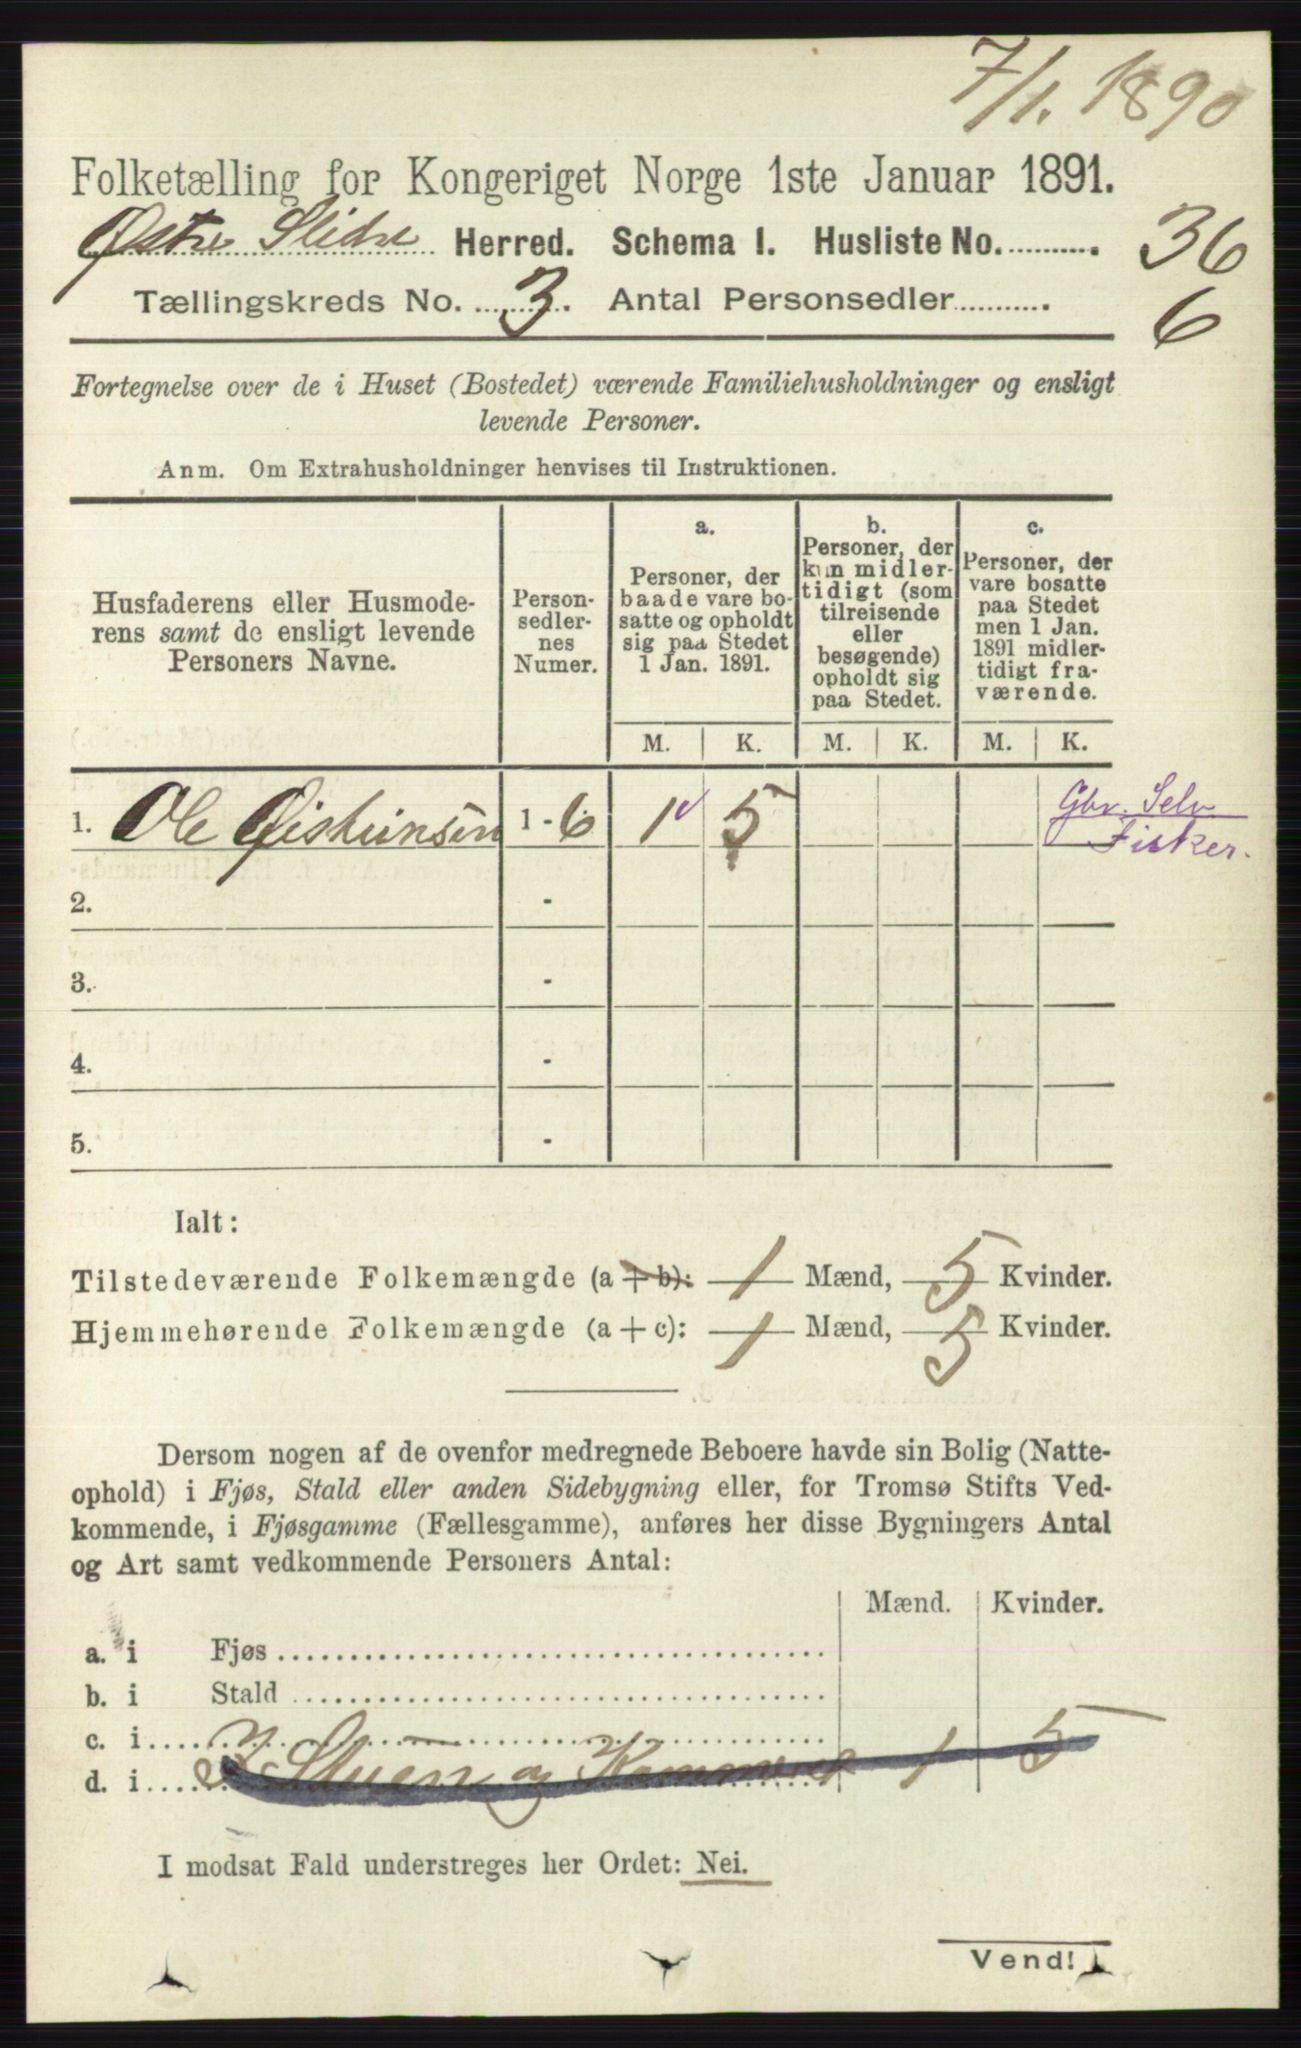 7/1. 1890
Folketælling for Kongeriget Norge 1ste Januar 1891.
Østre Slidre Herred. Schema I. Husliste No. .......... 36
Tællingskreds No. 3. Antal Personsedler........... 6
Fortegnelse over de i Huset (Bostedet) værende Familiehusholdninger og ensligt
levende Personer.
Anm. Om Extrahusholdninger henvises til Instruktionen.
Husfaderens eller Husmode-
rens samt de ensligt levende
Personers Navne.
Person-
sedler-
nes
Numer.
a.
Personer, der
baade vare bo-
satte og opholdt
sig paa Stedet
1 Jan. 1891.
b.
Personer, der
kun midler-
tidigt (som
tilreisende
eller
besøgende)
opholdt sig
paa Stedet.
c.
Personer, der
vare bosatte
paa Stedet
men 1 Jan.
1891 midler-
tidigt fra-
værende.
M. K. M. K. M. K.
1. Ole 1 - 6 1 5 Gbr. Selv
Fisker.
2. -
3. -
4. -
5. -
Ialt:
Tilstedeværende Folkemængde (a + b): 1 Mænd, 5 Kvinder.
Hjemmehørende Folkemængde (a + c): 1 Mænd, 5 Kvinder.
Dersom nogen af de ovenfor medregnede Beboere havde sin Bolig (Natte-
ophold) i Fjøs, Stald eller anden Sidebygning eller, for Tromsø Stifts Ved-
kommende, i Fjøsgamme (Fællesgamme), anføres her disse Bygningers Antal
og Art samt vedkommende Personers Antal:
Mænd. Kvinder.
a. i Fjøs
b. i Stald
c. i
d. i Stuen og 1 5
I modsat Fald understreges her Ordet: Nei.
Vend!